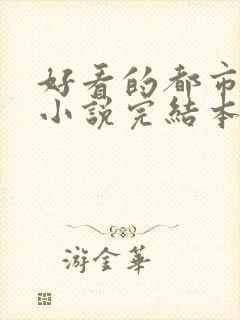 好看的都市
小說完結本
游金華